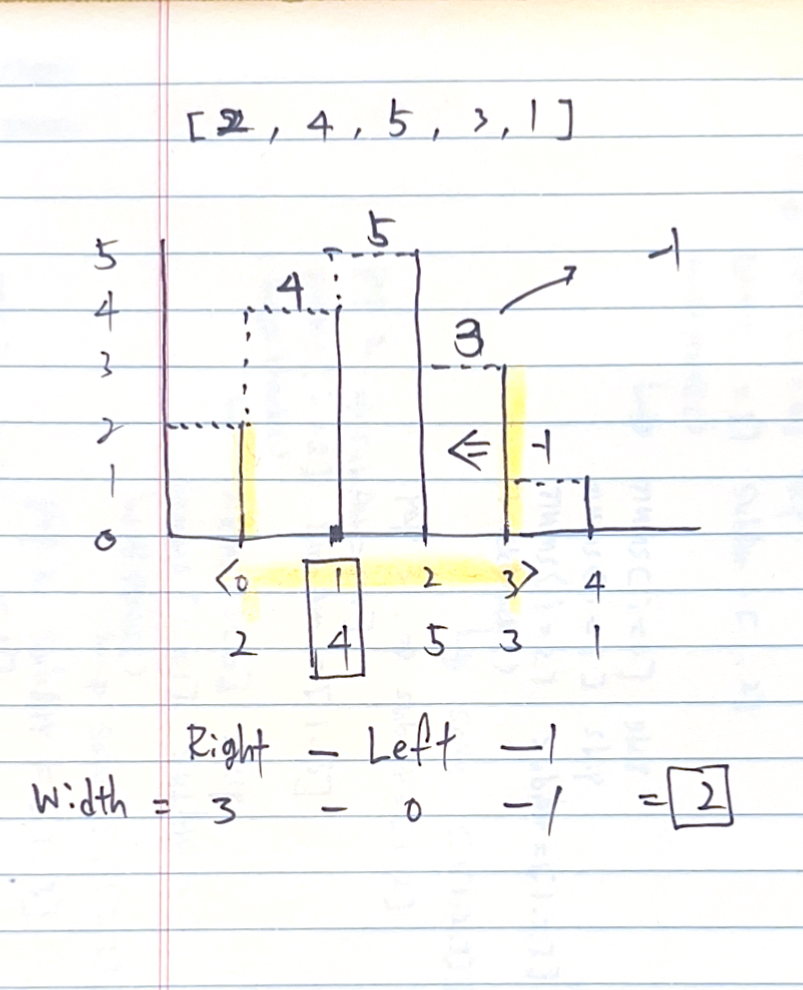 [2, 4, 5, 3, 1]
5
5
-1
4
4
3
3
2
⇐
-1
1
0
<0 1 2 3> 4
2 4 5 3 1
Right - Left -1
Width = 3 - 0 -1 = 2